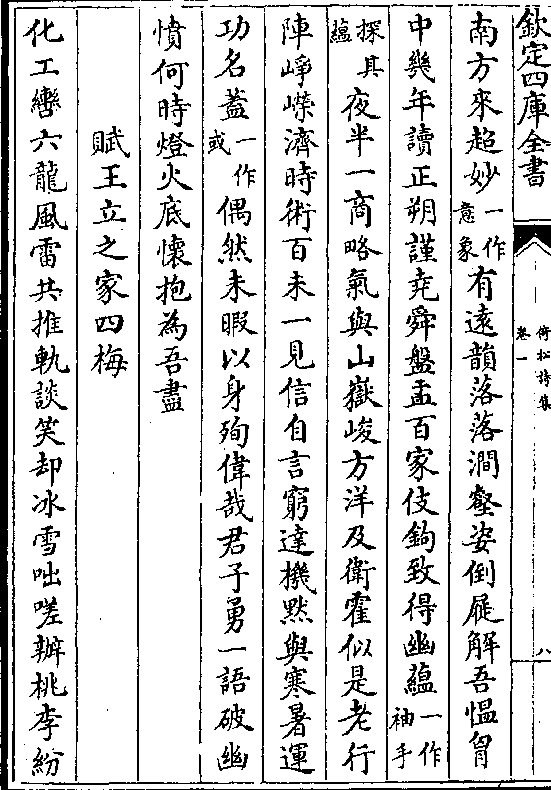 欽定四庫全書
倚松詩集
卷一
八
南方來超妙一作意象有遠韻落落澗壑姿倒屣解吾愠胷
中幾年讀正朔謹堯舜盤盂百家伎鉤致得幽蘊一作袖手
探其蘊夜半一商略氣與山嶽峻方洋及衛霍似是老行
陣崢嶸濟時術百未一見信自言窮達機默與寒暑運
功名蓋一作或偶然未暇以身殉偉哉君子勇一語破幽
憤何時燈火底懷抱為吾盡
賦王立之家四梅
化工轡六龍風雷共推軌談笑却冰雪咄嗟辦桃李紛